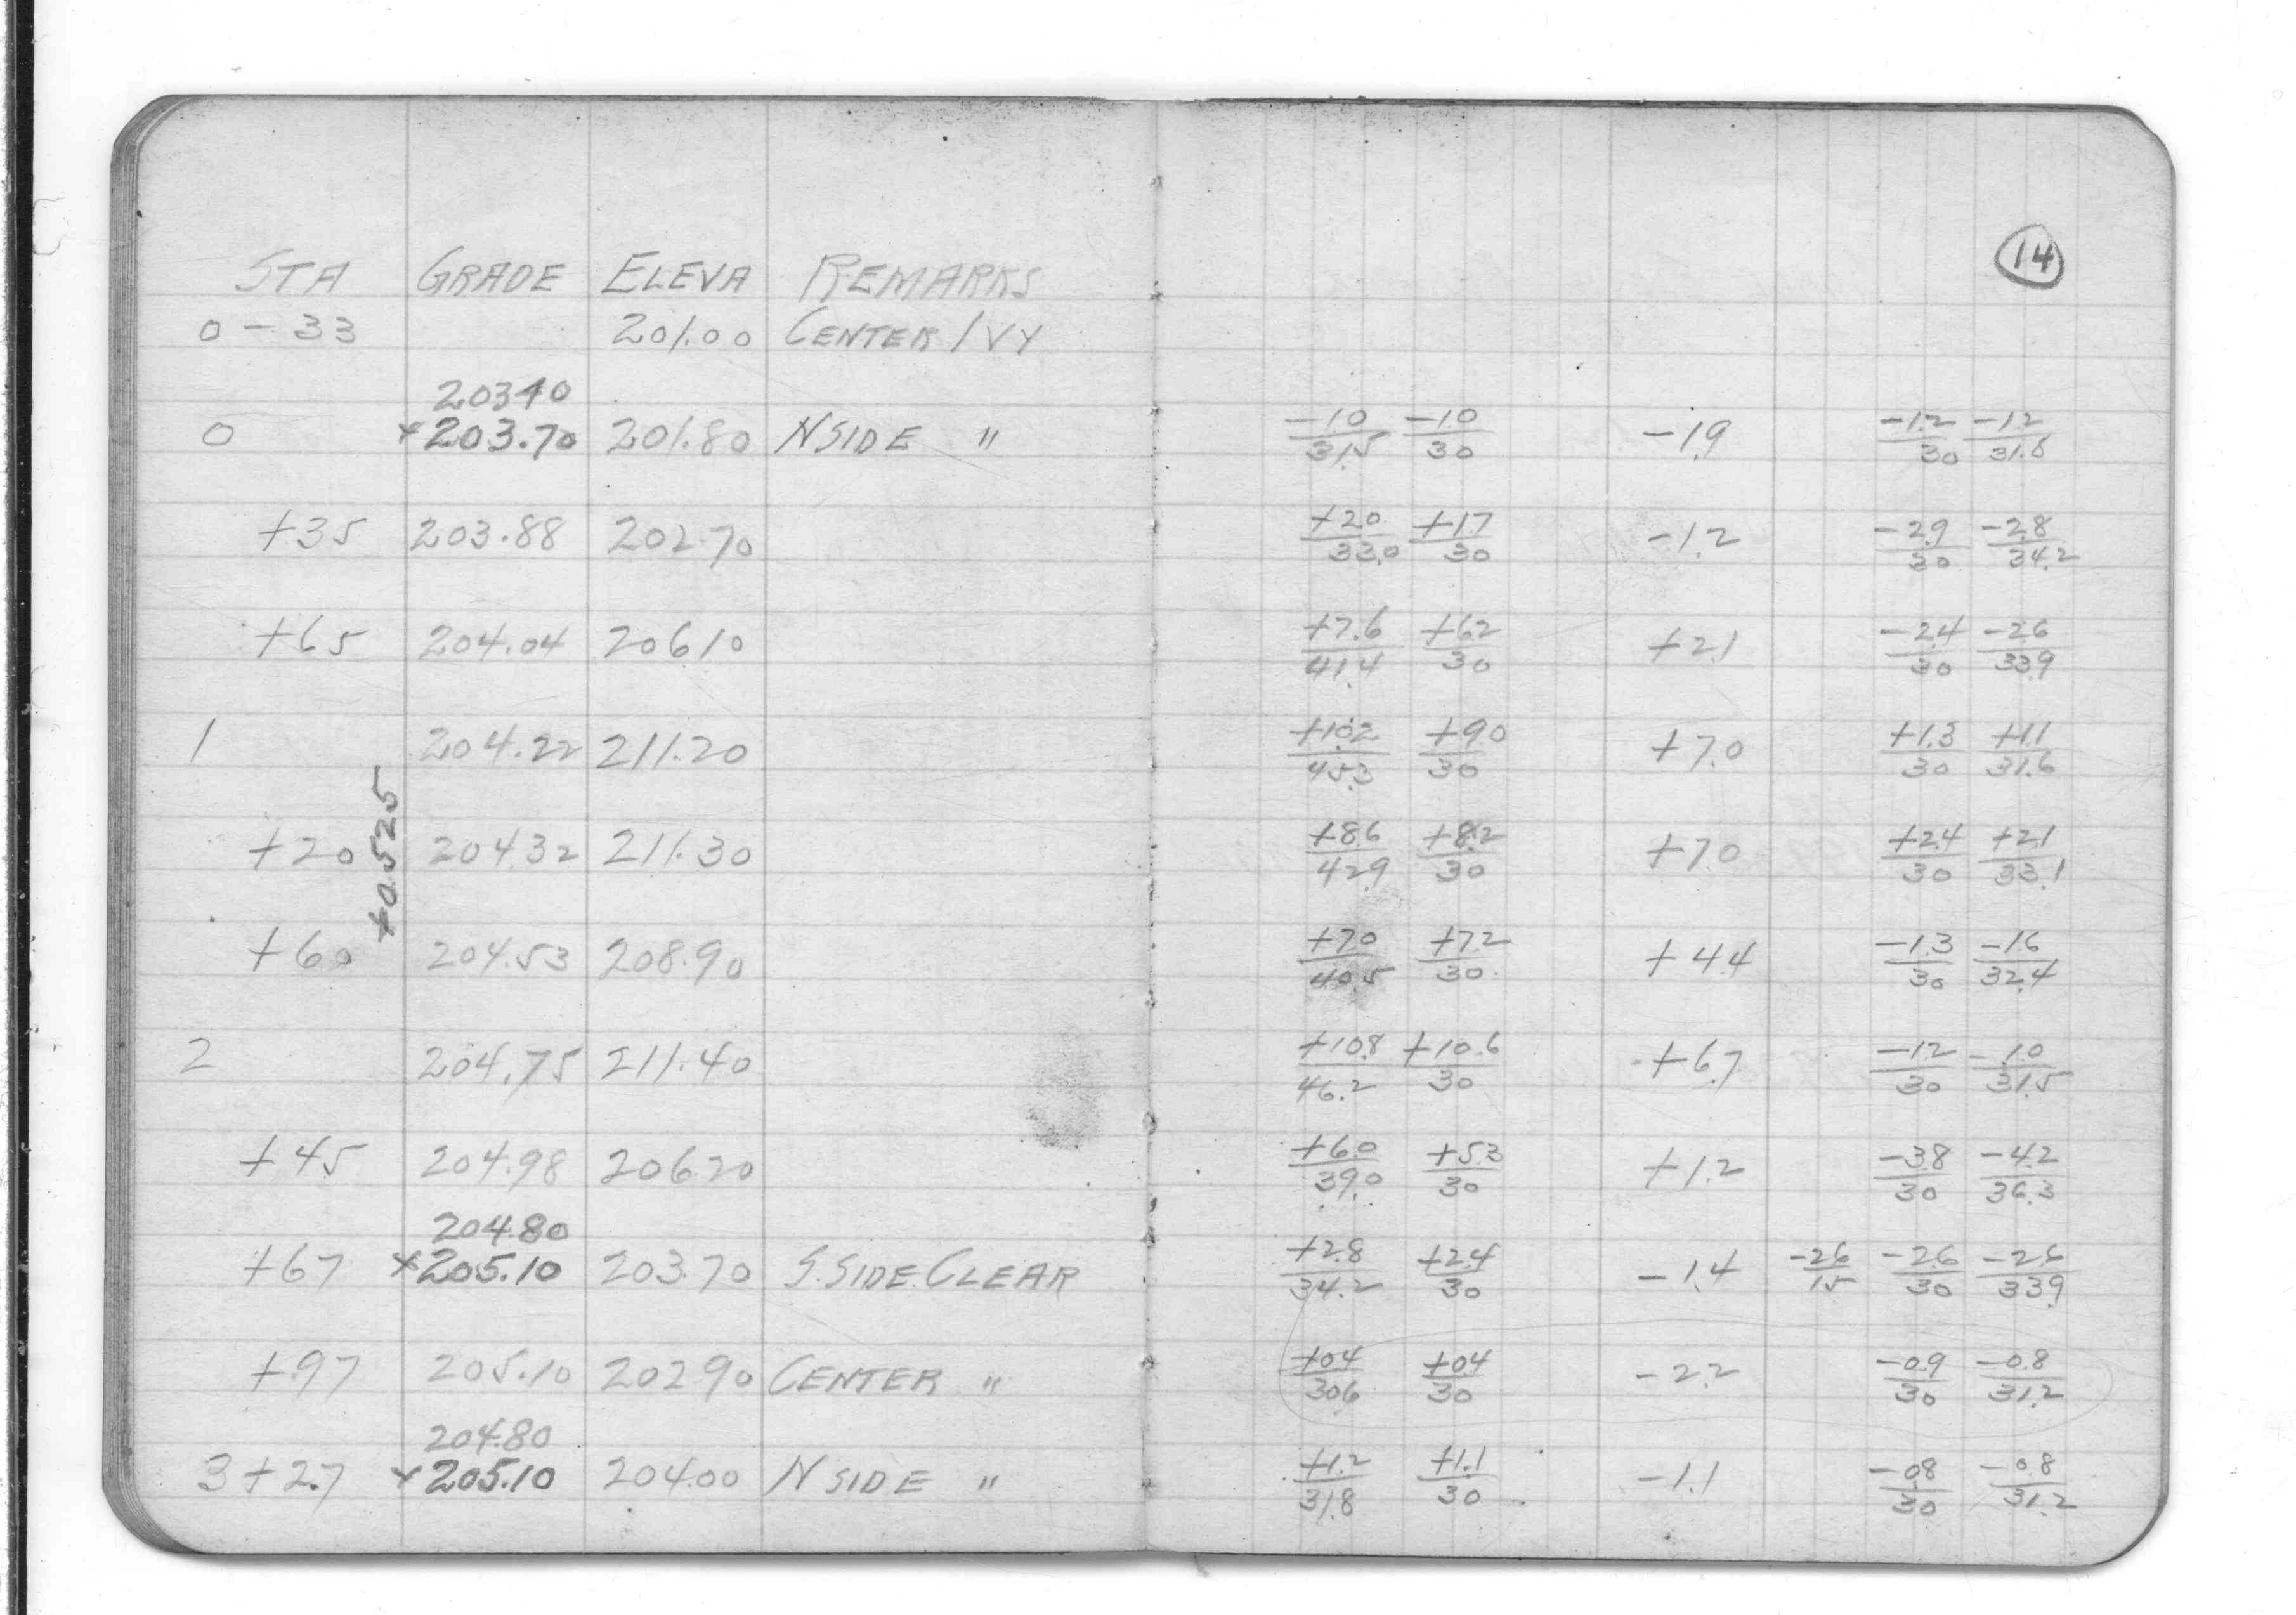 14
STA GRADE ELEVA REMARKS
0 - 33 201.00 CENTER IVY
203 40
0 x203.70 201.80 N SIDE "
-1.0 -1.0 -1.9 -1.2 -1.2
31.5 30 30 31.8
+35 203.88 202.70
+2.0 +1.7 -1.2 -2.9 -2.8
33.0 30 30 34.2
+65 204.04 206 10
+7.6 +6.2 +2.1 -2.4 -2.6
41.4 30 30 33.9
1 204.22 211.20
+10.2 +9.0 +7.0 +1.3 +1.1
45.3 30 30 31.6
+0.525
+20 204.32 211.30
+8.6 +8.2 +7.0 +2.4 +2.1
42.9 30 30 33.1
+60 204.53 208.90
+7.0 +7.2 +4.4 -1.3 -1.6
40.5 30 30 32.4
2 204.75 211.40
+10.8 +10.6 +6.7 -1.2 -1.0
46.2 30 30 31.5
+45 204.98 206.20
+6.0 +5.3 +1.2 -3.8 -4.2
39.0 30 30 36.3
204.80
+67 x205.10 203.70 S. SIDE CLEAR
+2.8 +2.4 -1.4 -2.6 -2.6 -2.6
34.2 30 15 30 33.9
+97 205.10 202 90 CENTER "
+0.4 +0.4 -2.2 -0.9 -0.8
30.6 30 30 31.2
204.80
3+27 x205.10 204.00 N SIDE "
+1.2 +1.1 -1.1 -0.8 -0.8
31.8 30 30 31.2